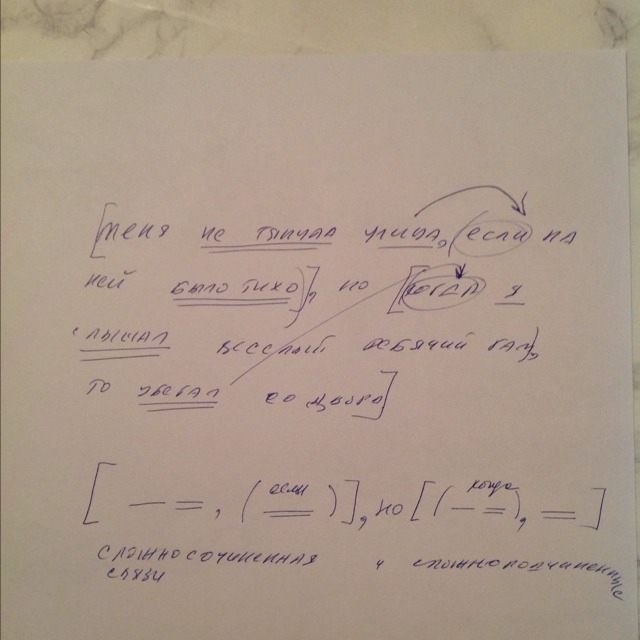 [меня не тянула улица, (если на
ней было тихо)], но [(когда я
слышал веселый ребячий гам),
то убегал со двора]
[ — =, (если =)], но [(когда — =), = ]
сложносочиненная и сложноподчиненные
связи